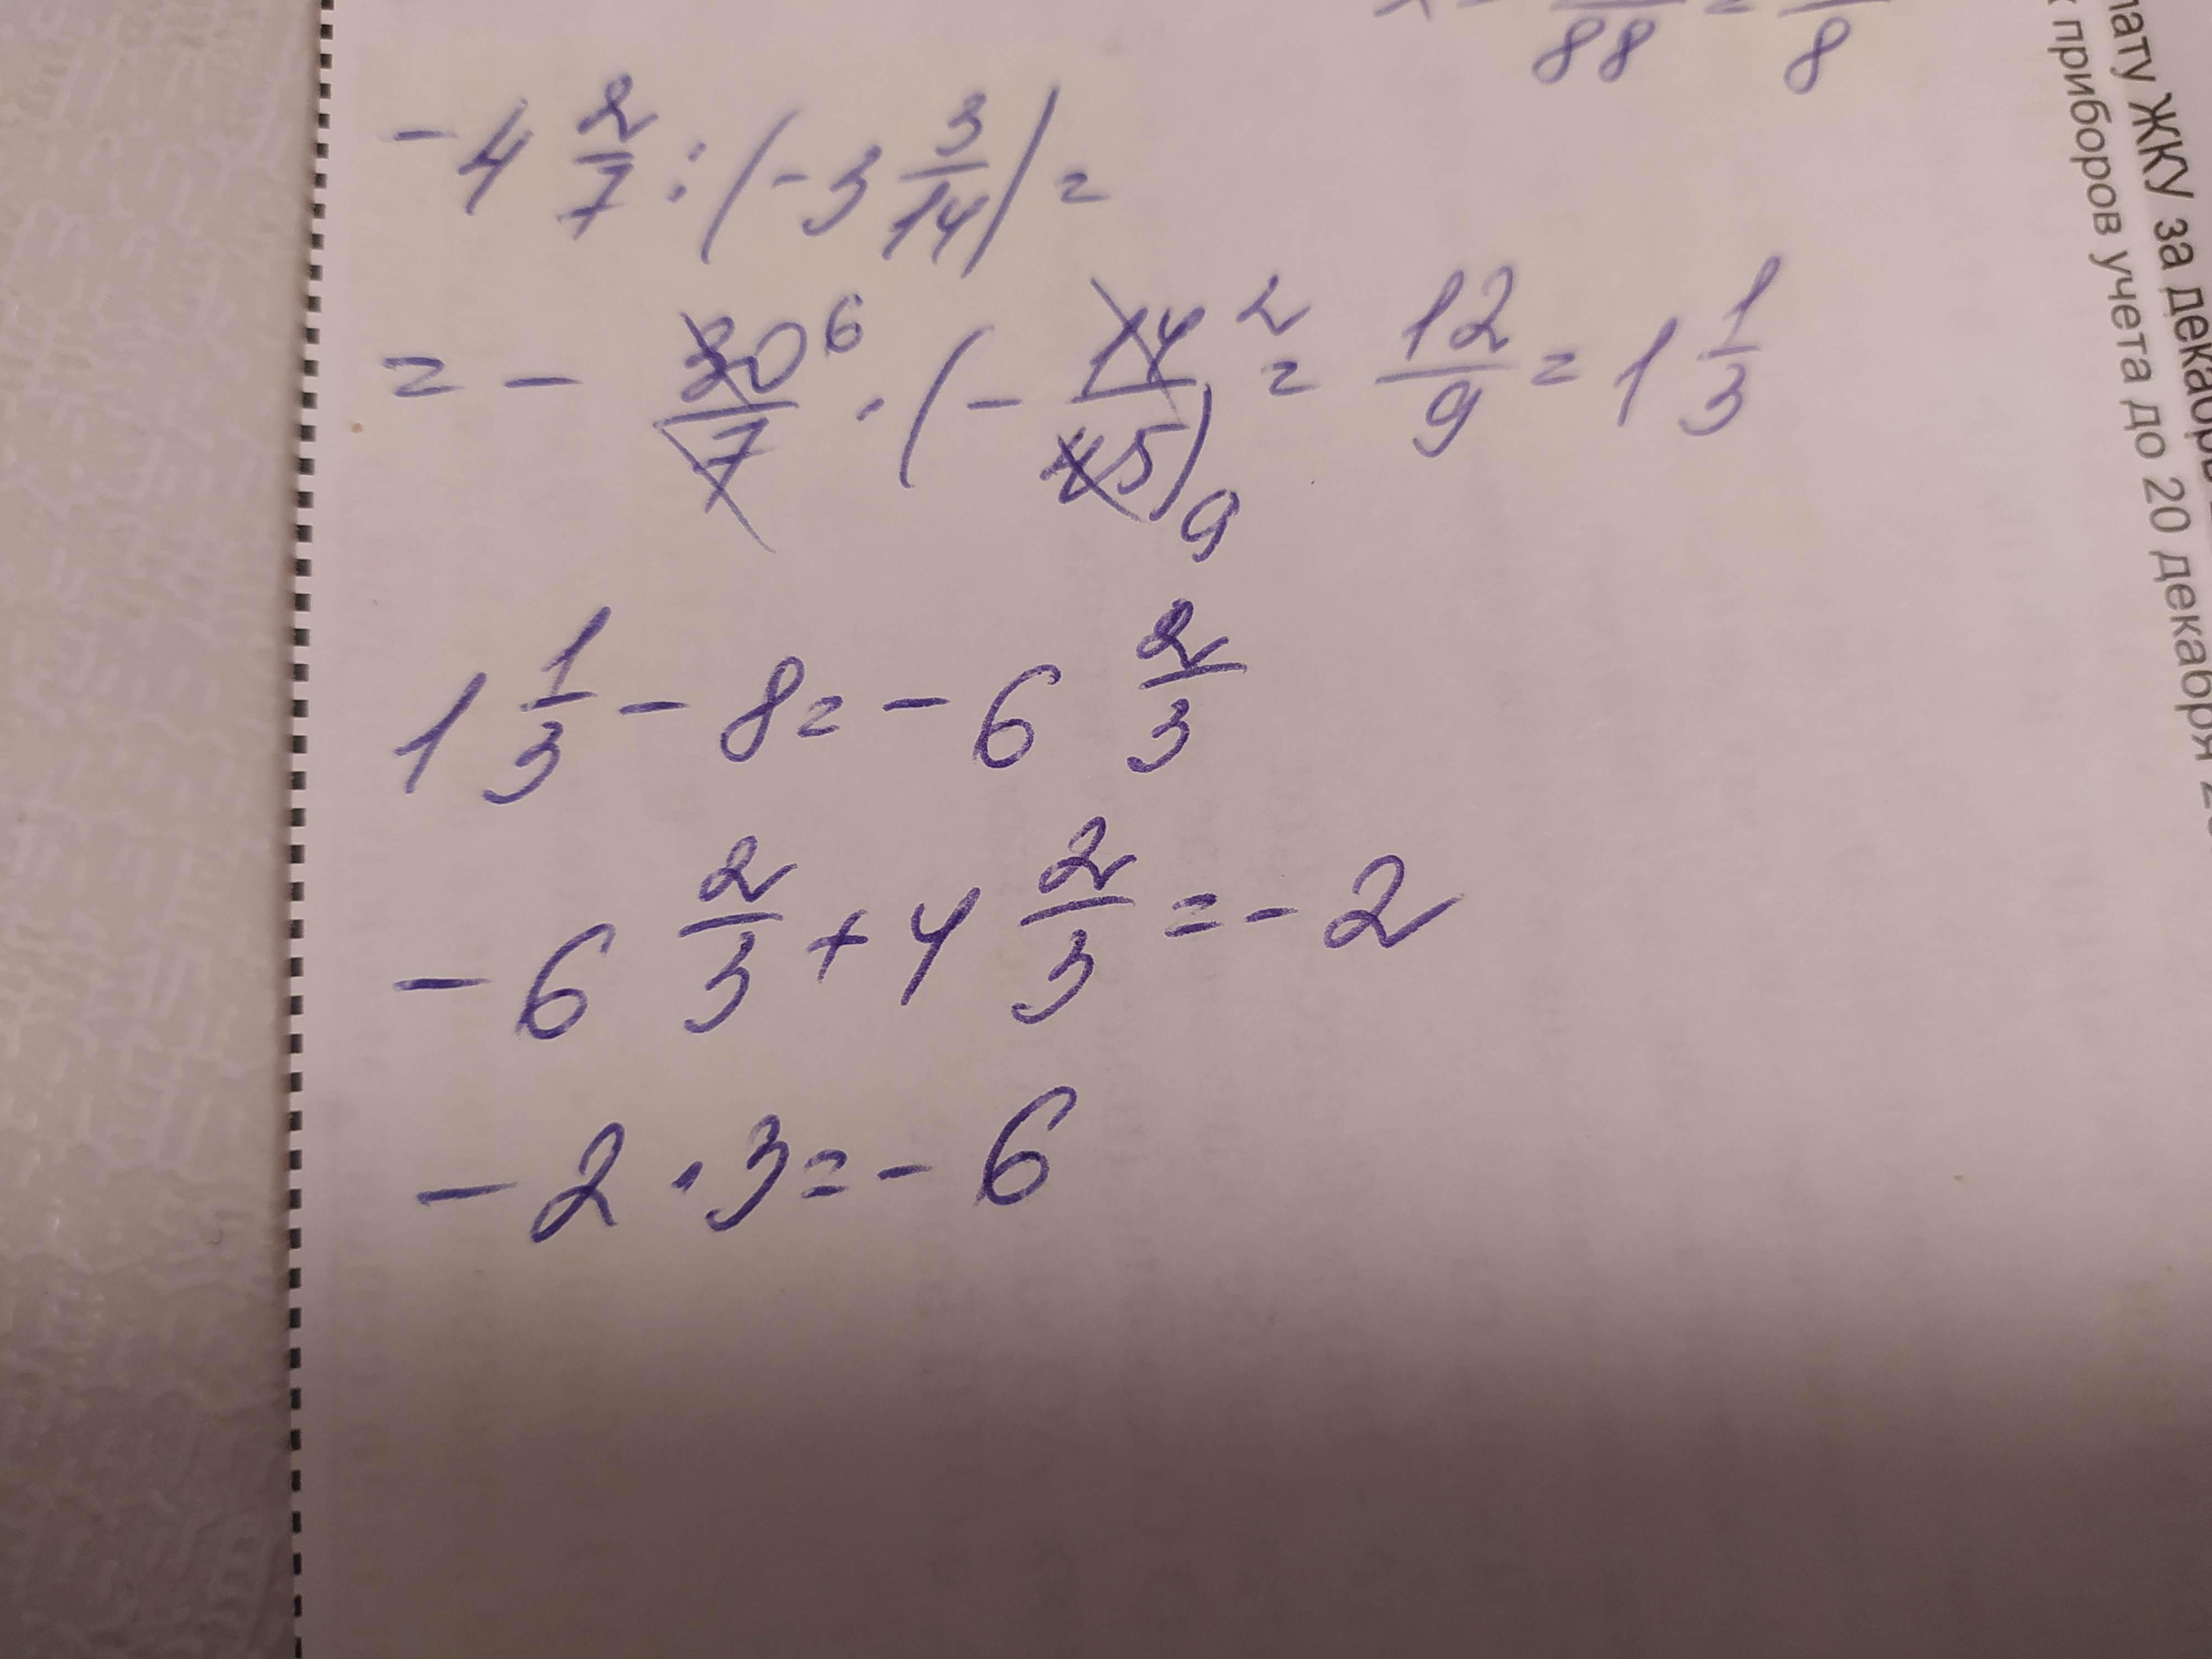 88 = 8
-4 2/7 : (-3 3/14) =
= - 30/7 6 · (- 14/45) 2 9 = 12/9 = 1 1/3
1 1/3 - 8 = - 6 2/3
- 6 2/3 + 4 2/3 = - 2
- 2 · 3 = - 6
лату ЖКУ за декабрь
приборов учета до 20 декабря